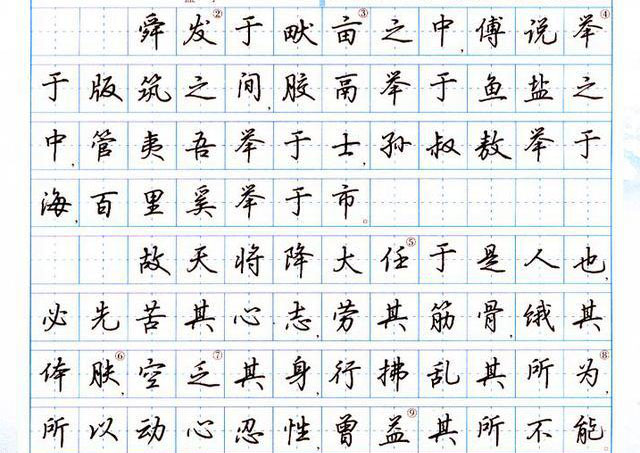 舜发②于畎亩③之中,傅说举④
于版筑之间,胶鬲举于鱼盐之
中,管夷吾举于士,孙叔敖举于
海,百里奚举于市。
故天将降大任⑤于是人也,
必先苦其心志,劳其筋骨,饿其
体肤⑥,空乏⑦其身,行拂乱其所为⑧,
所以动心忍性,曾益⑨其所不能。